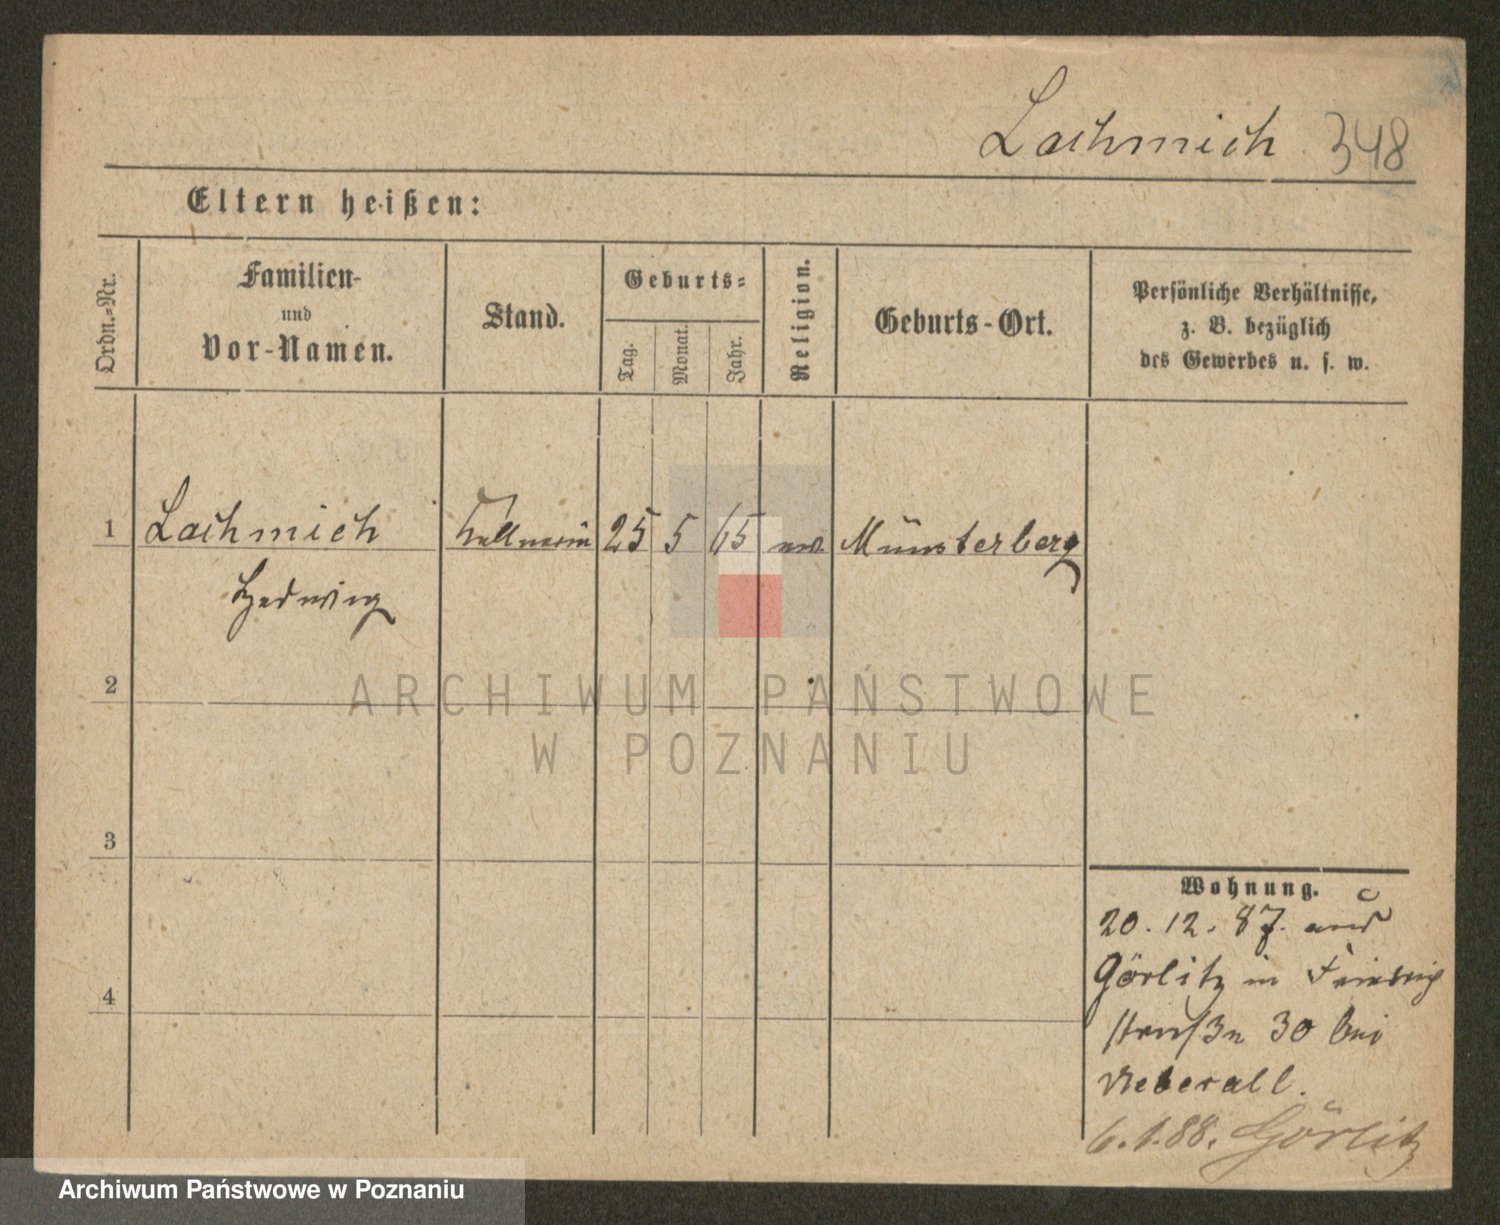 Lachmich 348
Eltern heißen:
Ordn.-Nr.
Familien-
und
Vor-Namen.
Stand.
Geburts-
Tag.
Monat.
Jahr.
Religion.
Geburts-Ort.
Persönliche Verhältnisse,
z. B. bezüglich
des Gewerbes u. s. w.
1 Lachmich Kellnerin 25 5 65 Münsterberg
Hedwig
2
3
4
Wohnung.
20. 12. 87. aus
Görlitz in Friedrich
straße 30 bei
Ueberall.
6.1.88. Görlitz
ARCHIWUM PAŃSTWOWE
W POZNANIU
Archiwum Państwowe w Poznaniu